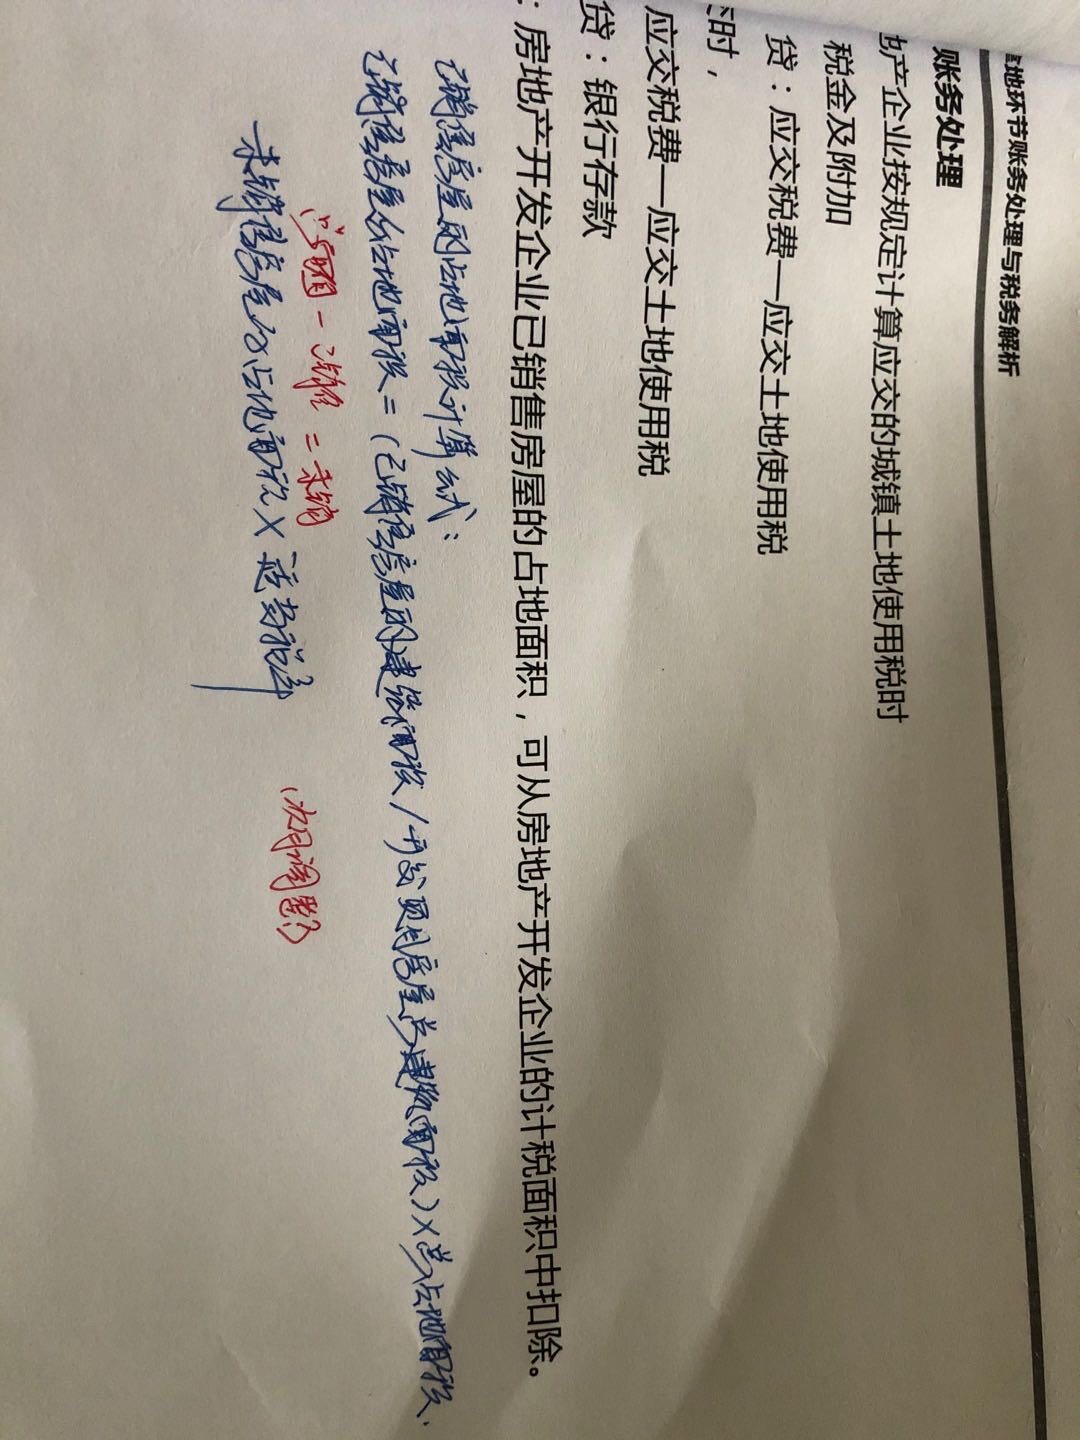 地环节账务处理与税务解析
账务处理
地产企业按规定计算应交的城镇土地使用税时
税金及附加
贷：应交税费—应交土地使用税
时，
应交税费—应交土地使用税
贷：银行存款
：房地产开发企业已销售房屋的占地面积，可从房地产开发企业的计税面积中扣除。
已销售房屋的占地面积计算公式：
已销售房屋的占地面积=(已销售房屋的建筑面积/开发项目房屋总建筑面积)×总占地面积.
-已销售=未销
未销售房屋的占地面积×适当税率
(次月调整)